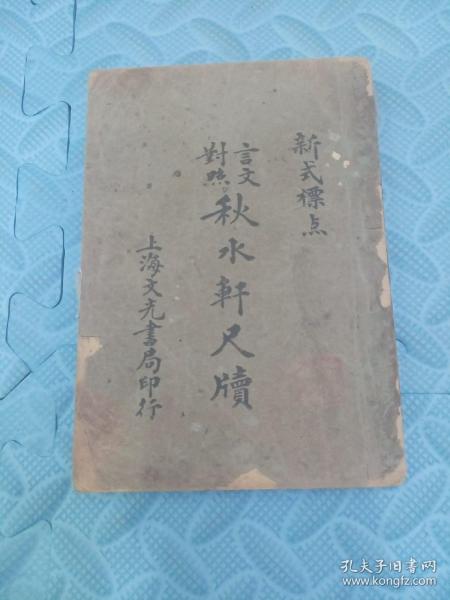 新式标点
言文
對照
秋水軒尺牘
上海文光書局印行
孔夫子旧书网
www.kongfz.com